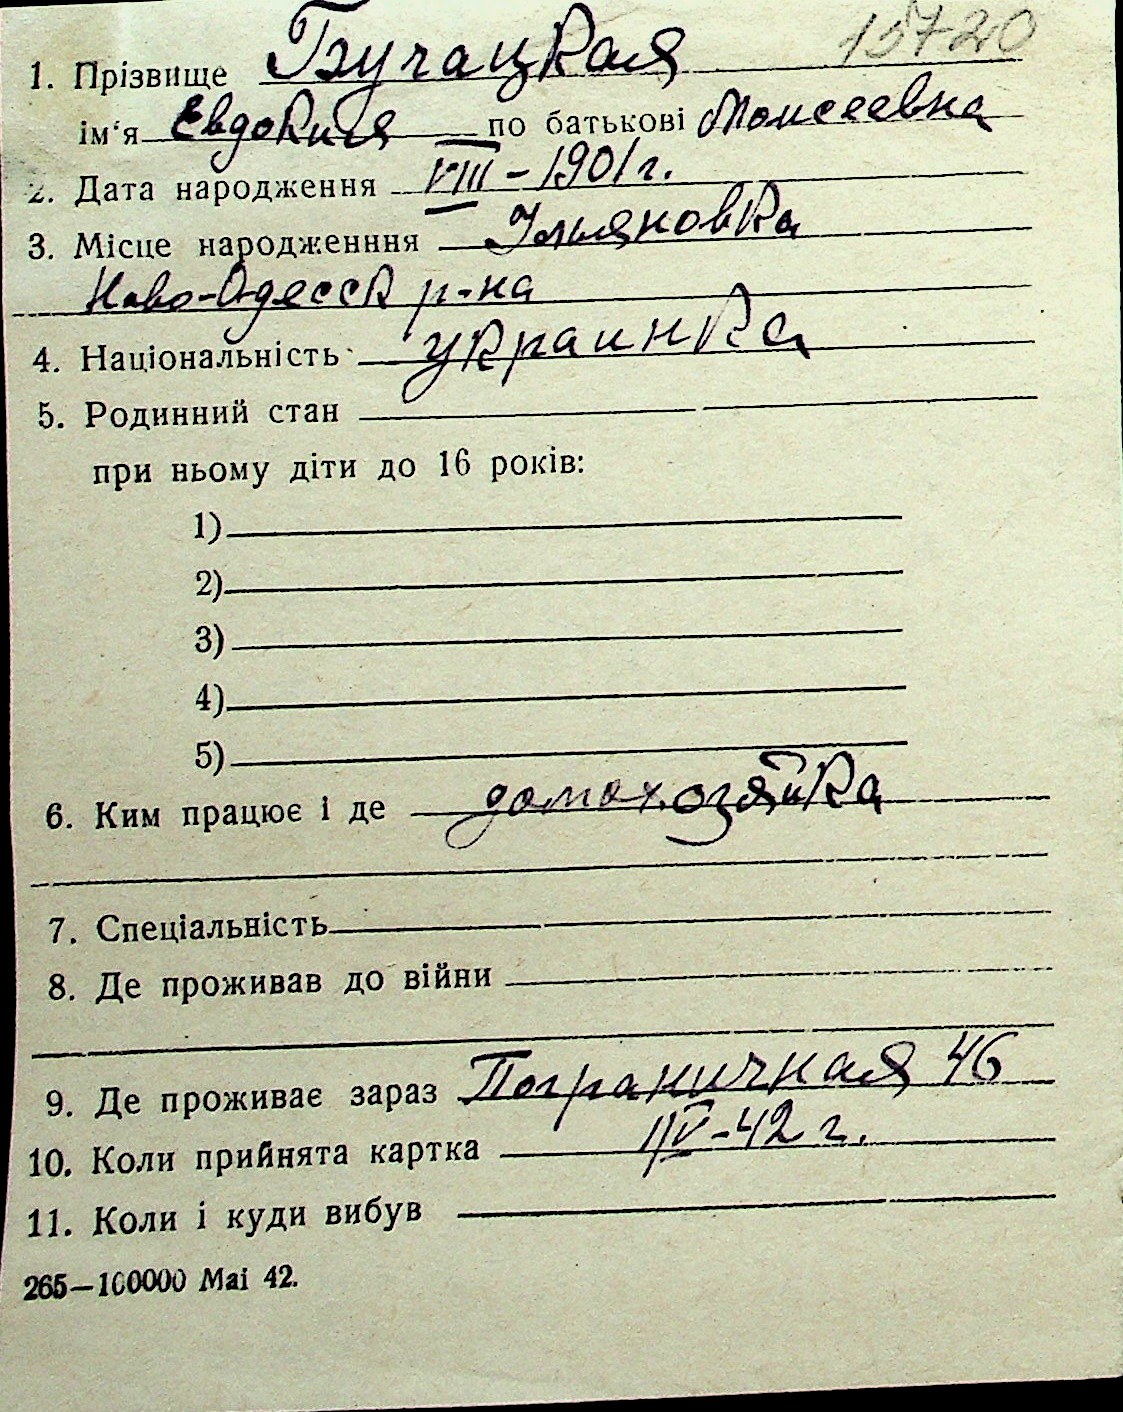 15720
1. Прізвище Бучацкая
ім'я Евдокия по батькові Моисеевна
2. Дата народження VIII - 1901 г.
3. Місце народженння Ульяновка
Ново-Одесск р-на
4. Національність украинка
5. Родинний стан
при ньому діти до 16 років:
1)
2)
3)
4)
5)
6. Ким працює і де домохозяйка
7. Спеціальність
8. Де проживав до війни
9. Де проживає зараз Пограничная 46
10. Коли прийнята картка -42 г.
11. Коли і куди вибув
265—100000 Mai 42.